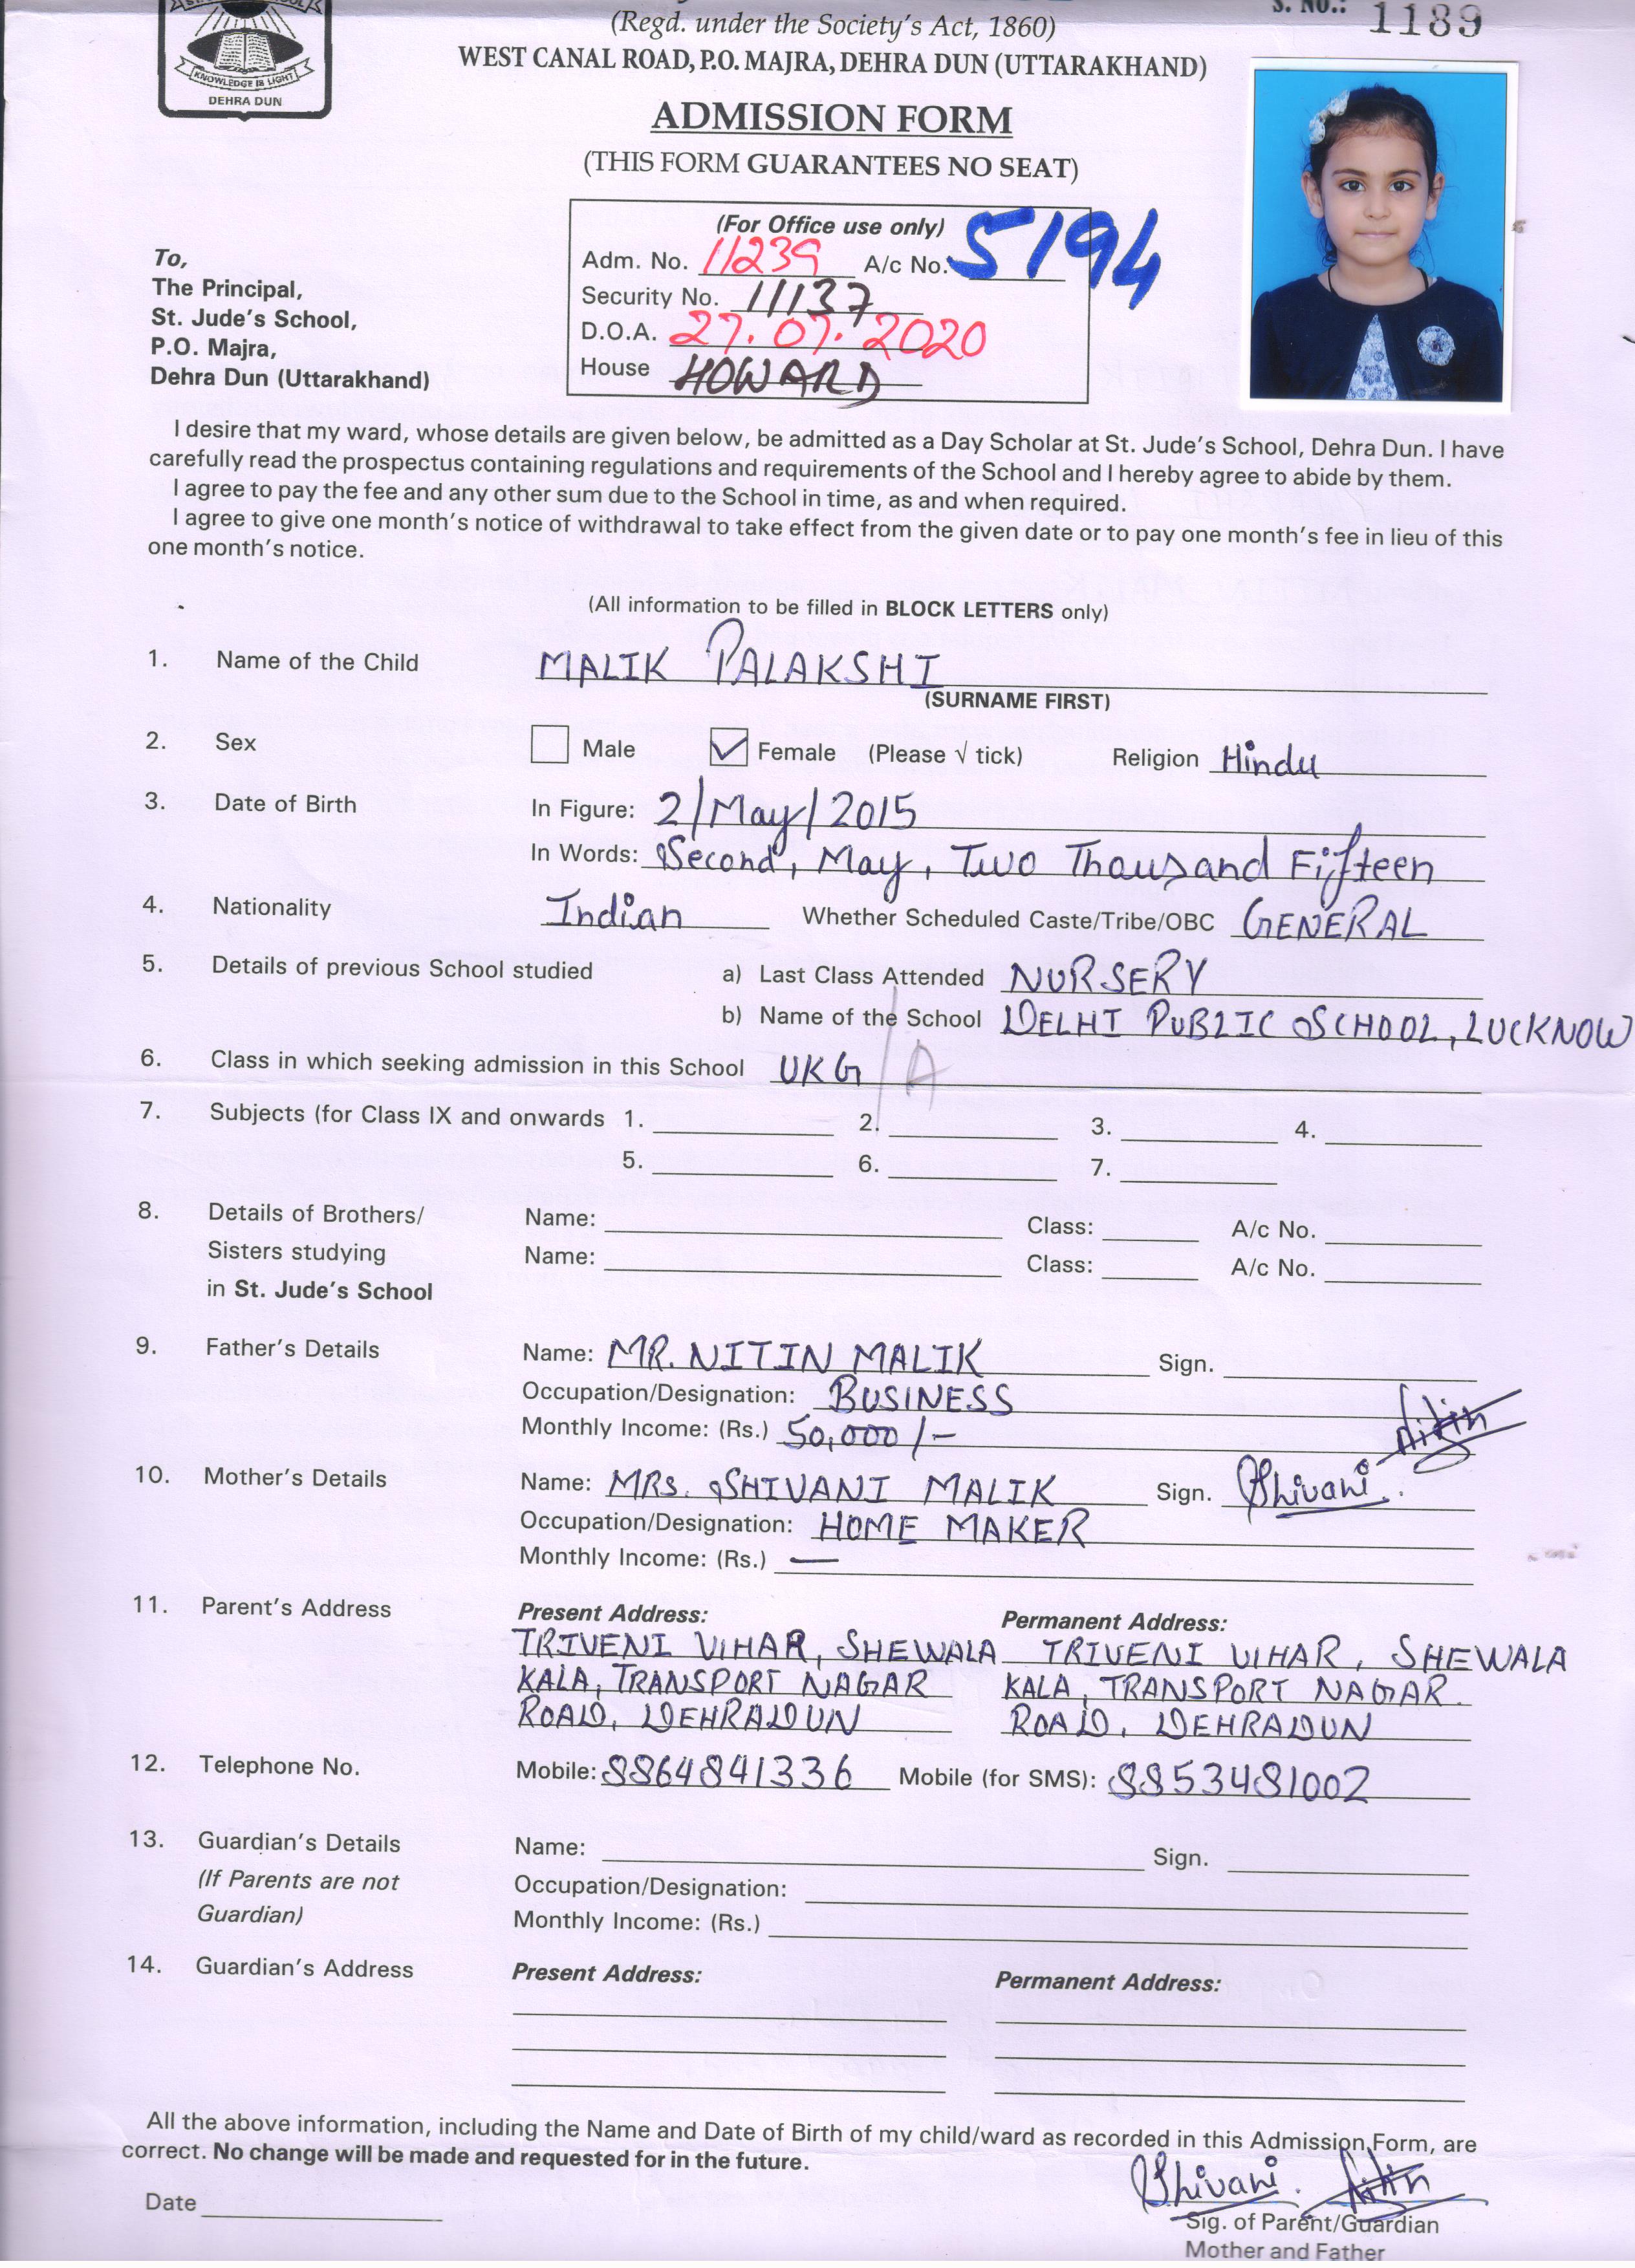 KNOWLEDGE IS LIGHT
DEHRA DUN
S. NO.: 1189
(Regd. under the Society's Act, 1860)
WEST CANAL ROAD, P.O. MAJRA, DEHRA DUN (UTTARAKHAND)
ADMISSION FORM
(THIS FORM GUARANTEES NO SEAT)
(For Office use only)
Adm. No. 11239 A/c No. 5194
Security No. 11137
D.O.A. 27.07.2020
House HOWARD
To,
The Principal,
St. Jude's School,
P.O. Majra,
Dehra Dun (Uttarakhand)
I desire that my ward, whose details are given below, be admitted as a Day Scholar at St. Jude's School, Dehra Dun. I have
carefully read the prospectus containing regulations and requirements of the School and I hereby agree to abide by them.
I agree to pay the fee and any other sum due to the School in time, as and when required.
I agree to give one month's notice of withdrawal to take effect from the given date or to pay one month's fee in lieu of this
one month's notice.
(All information to be filled in BLOCK LETTERS only)
1. Name of the Child MALIK PALAKSHI
(SURNAME FIRST)
2. Sex Male Female (Please √ tick) Religion Hindu
3. Date of Birth In Figure: 2/May/2015
In Words: Second, May, Two Thousand Fifteen
4. Nationality Indian Whether Scheduled Caste/Tribe/OBC GENERAL
5. Details of previous School studied a) Last Class Attended NURSERY
b) Name of the School DELHI PUBLIC SCHOOL, LUCKNOW
6. Class in which seeking admission in this School UKG/A
7. Subjects (for Class IX and onwards 1. 2. 3. 4.
5. 6. 7.
8. Details of Brothers/ Name: Class: A/c No.
Sisters studying Name: Class: A/c No.
in St. Jude's School
9. Father's Details Name: MR. NITIN MALIK Sign.
Occupation/Designation: BUSINESS
Monthly Income: (Rs.) 50,000/- Nitin
10. Mother's Details Name: MRS. SHIVANI MALIK Sign. Shivani.
Occupation/Designation: HOME MAKER
Monthly Income: (Rs.) —
11. Parent's Address Present Address: Permanent Address:
TRIVENI VIHAR, SHEWALA TRIVENI VIHAR, SHEWALA
KALA, TRANSPORT NAGAR KALA, TRANSPORT NAGAR
ROAD, DEHRADUN ROAD, DEHRADUN
12. Telephone No. Mobile: 8864841336 Mobile (for SMS): 8853481002
13. Guardian's Details Name: Sign.
(If Parents are not Occupation/Designation:
Guardian) Monthly Income: (Rs.)
14. Guardian's Address Present Address: Permanent Address:
All the above information, including the Name and Date of Birth of my child/ward as recorded in this Admission Form, are
correct. No change will be made and requested for in the future.
Shivani. Nitin
Date
Sig. of Parent/Guardian
Mother and Father